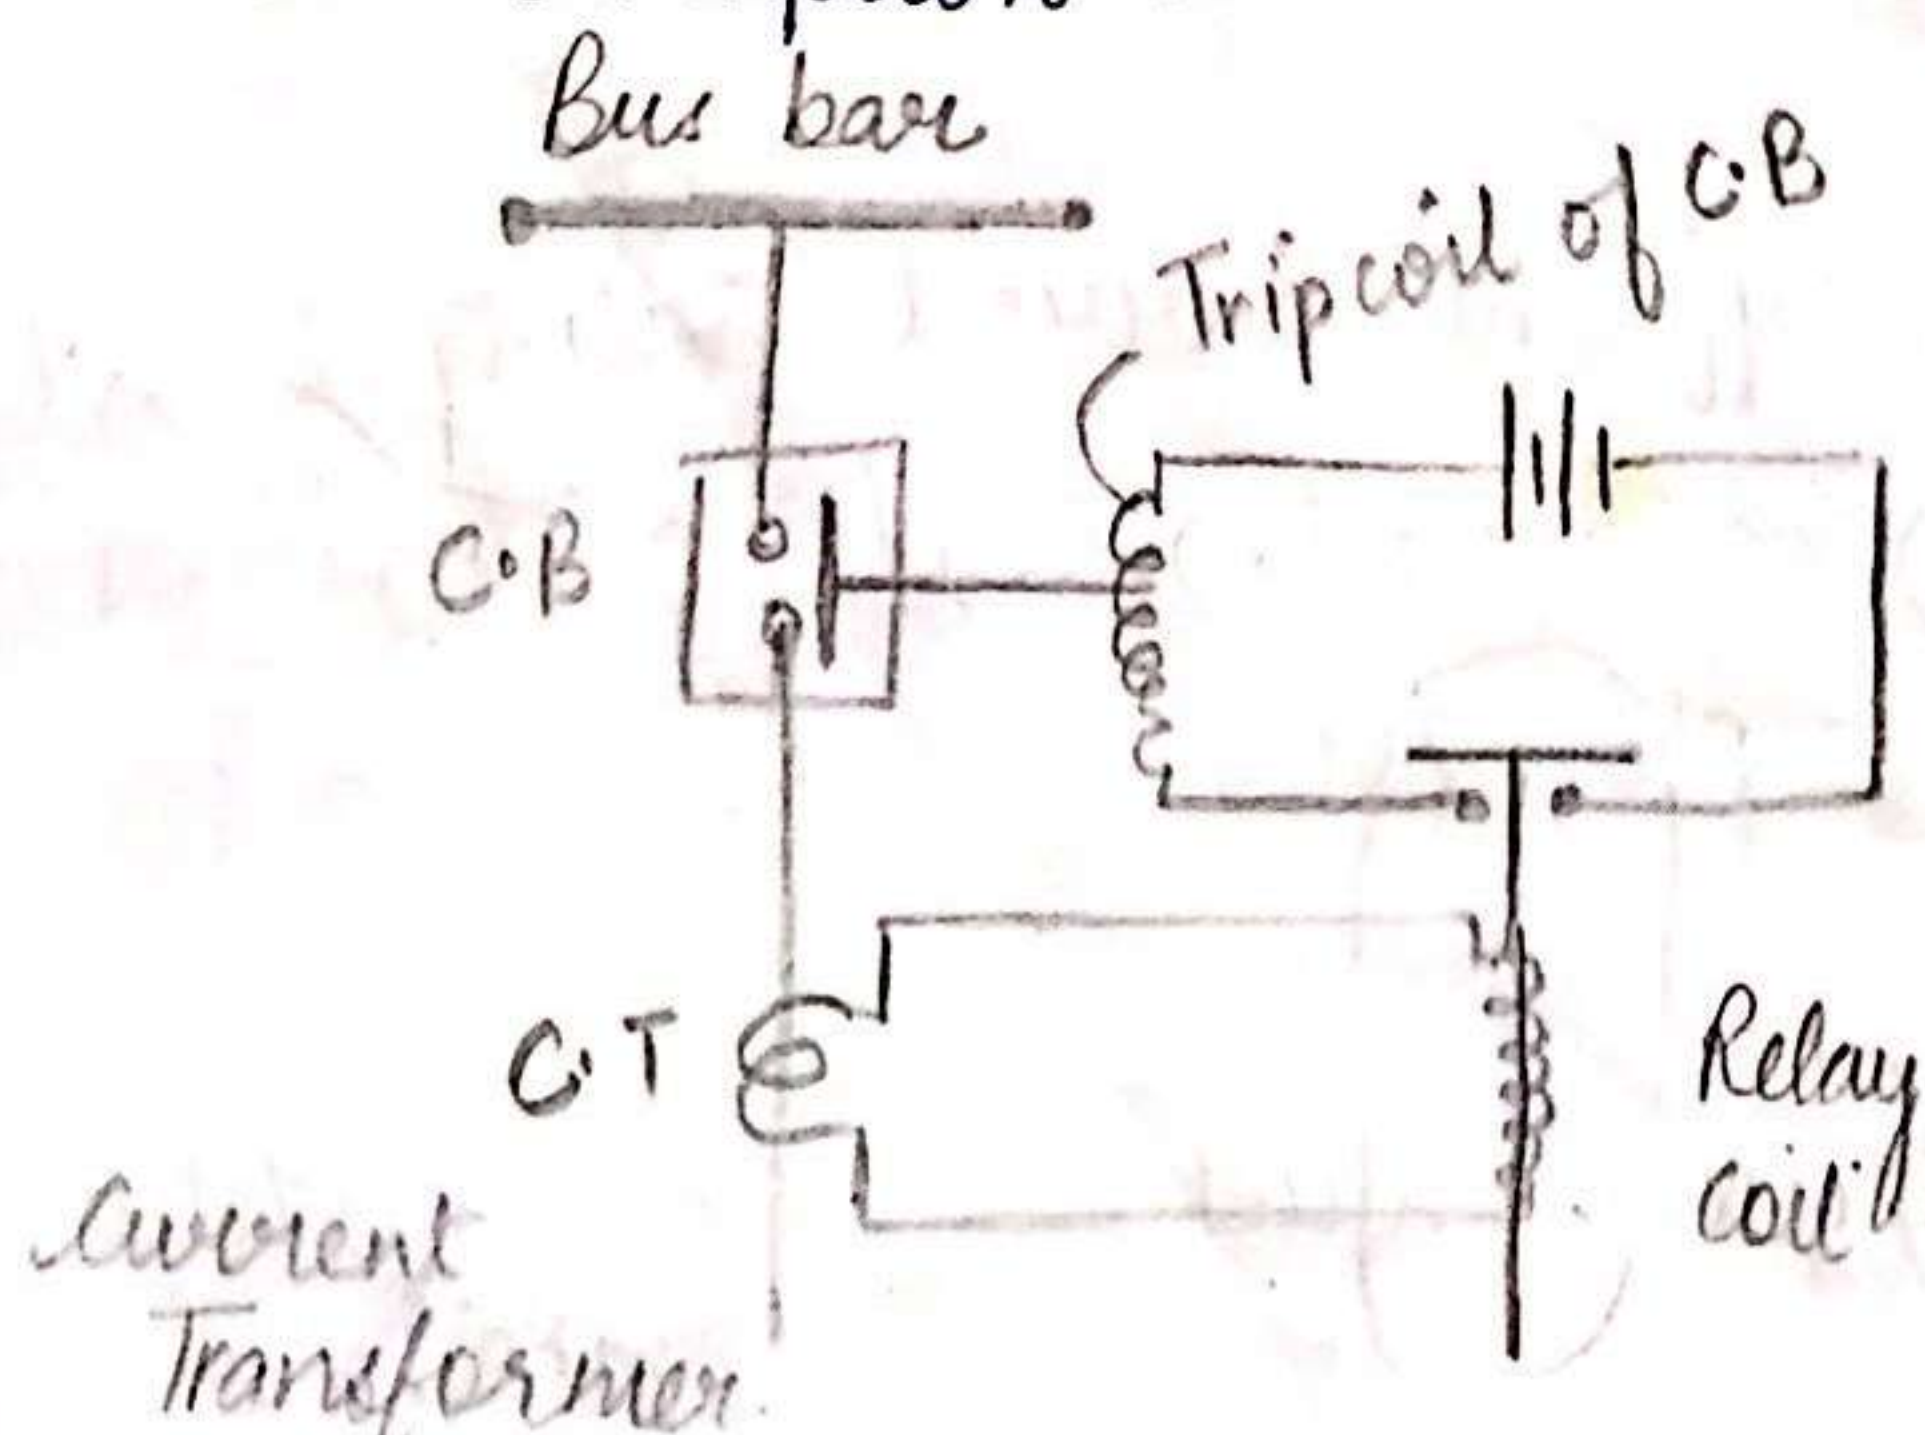 Bus bar
Tripcoil of C.B
C.B
C.T
Relay
coil
Current
Transformer.